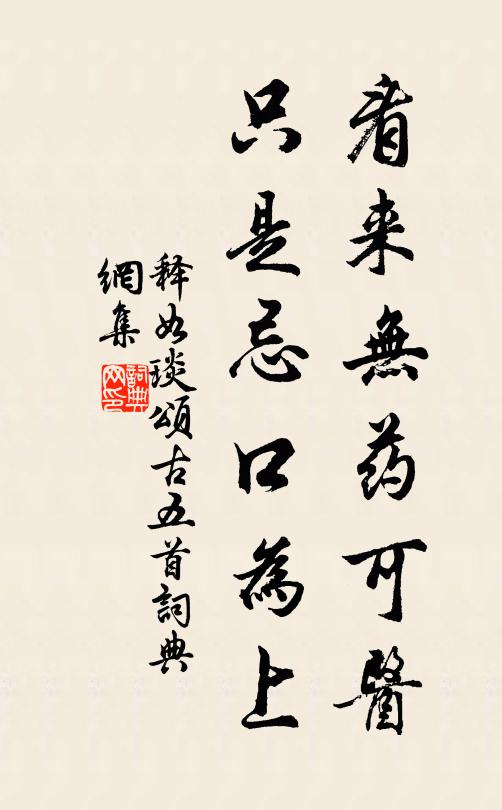 看来無药可醫
只是忌口為上
释如琰頌古五首詞典
網集
詞典
网印